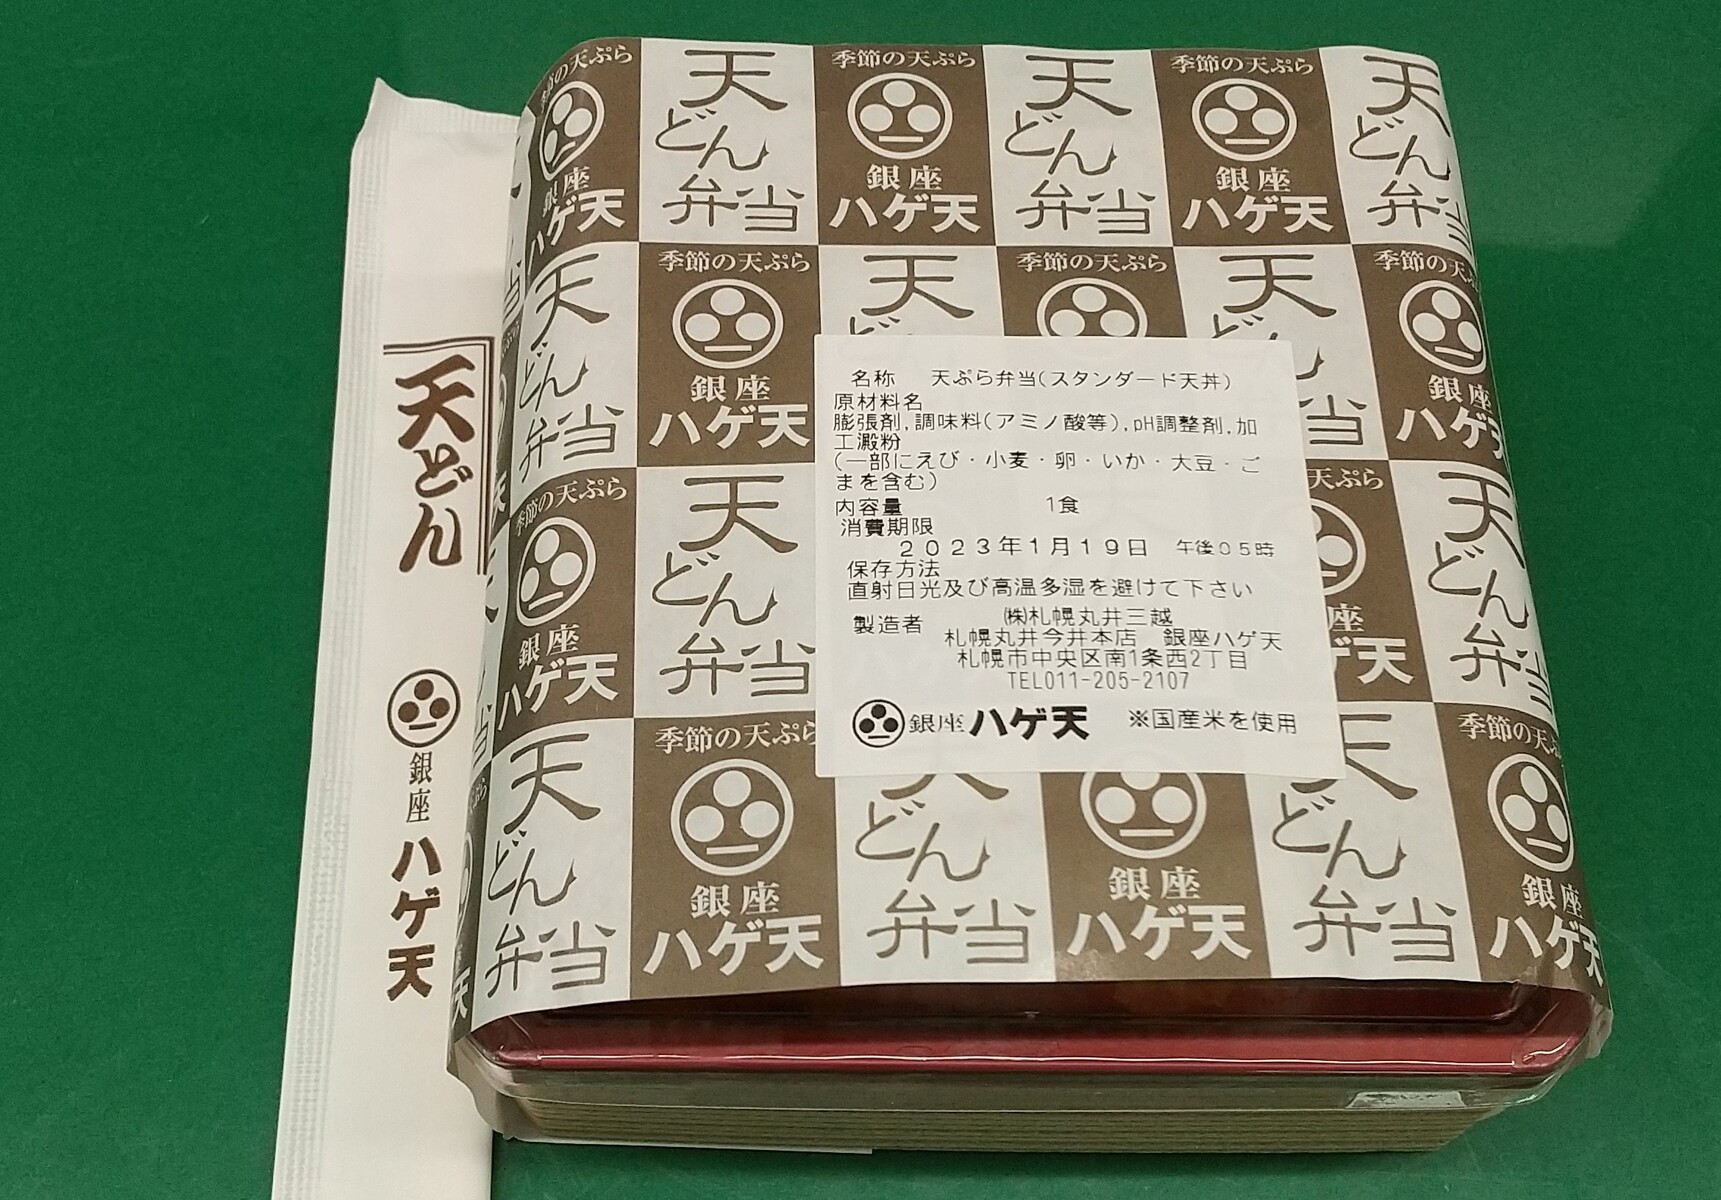 天どん
銀座
ハゲ天
季節の天ぷら
銀座
ハゲ天
天どん弁当
季節の天ぷら
銀座
ハゲ天
天どん弁当
季節の天ぷら
銀座
ハゲ天
天どん弁当
天どん弁当
季節の天ぷら
銀座
ハゲ天
季節の天ぷら
季節の天ぷら
銀座
季節の天ぷら
銀座
ハゲ天
天どん弁当
天どん弁当
名称 天ぷら弁当(スタンダード天丼)
原材料名
膨張剤,調味料(アミノ酸等),pH調整剤,加
工澱粉
(一部にえび・小麦・卵・いか・大豆・ご
まを含む)
内容量 1食
消費期限
2023年1月19日 午後05時
保存方法
直射日光及び高温多湿を避けて下さい
製造者 ㈱札幌丸井三越
札幌丸井今井本店 銀座ハゲ天
札幌市中央区南1条西2丁目
TEL011-205-2107
銀座ハゲ天 ※国産米を使用
天どん弁当
季節の天ぷら
銀座
ハゲ天
どん弁当
銀座
ハゲ天
どん弁当
季節の天ぷ
銀座
ハゲ天